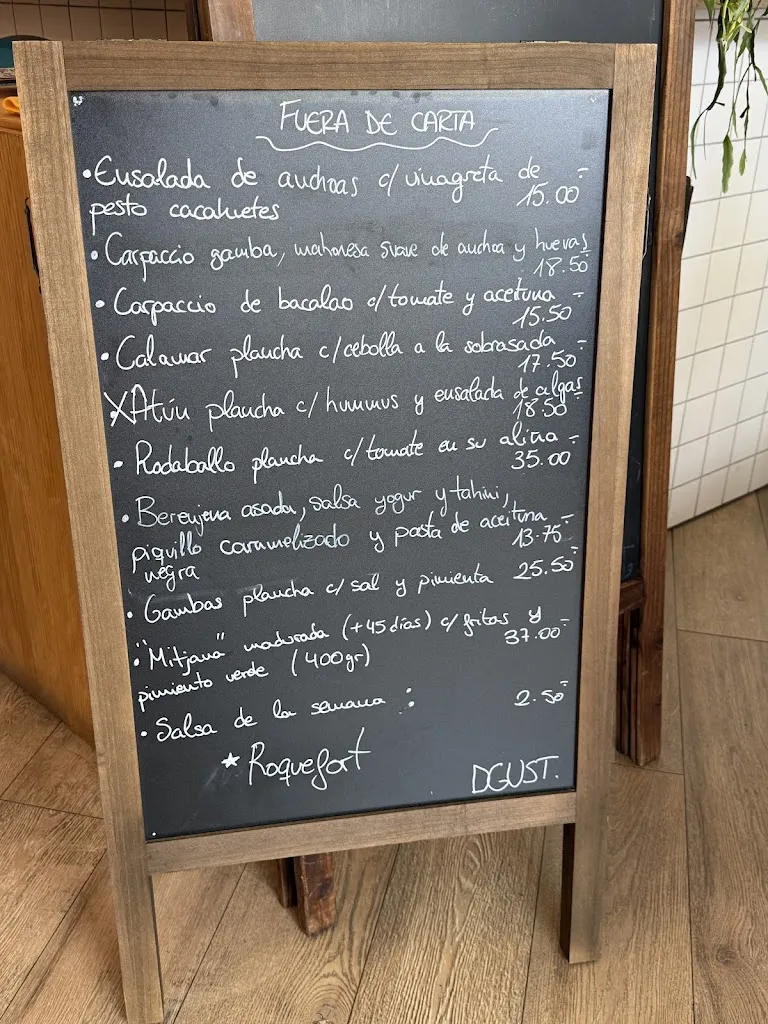 FUERA DE CARTA
• Ensalada de anchoas c/ vinagreta de
15.00
pesto cacahuetes
• Carpaccio gamba, mahonesa suave de anchoa y huevas
18.50
• Carpaccio de bacalao c/tomate y aceituna
15.50
• Calamar plancha c/cebolla a la sobrasada
17.50
X Atún plancha c/ hummus y ensalada de algas
18.50
• Rodaballo plancha c/tomate en su aliño
35.00
• Berenjena asada, salsa yogur y tahini,
piquillo caramelizado y pasta de aceituna
13.75
negra
• Gambas plancha c/ sal y pimienta 25.50
• "Mitjana" madurada (+45 días) c/ fritas y
37.00
pimiento verde (400gr)
• Salsa de la semana : 2.50
★ Roquefort
DGUST.